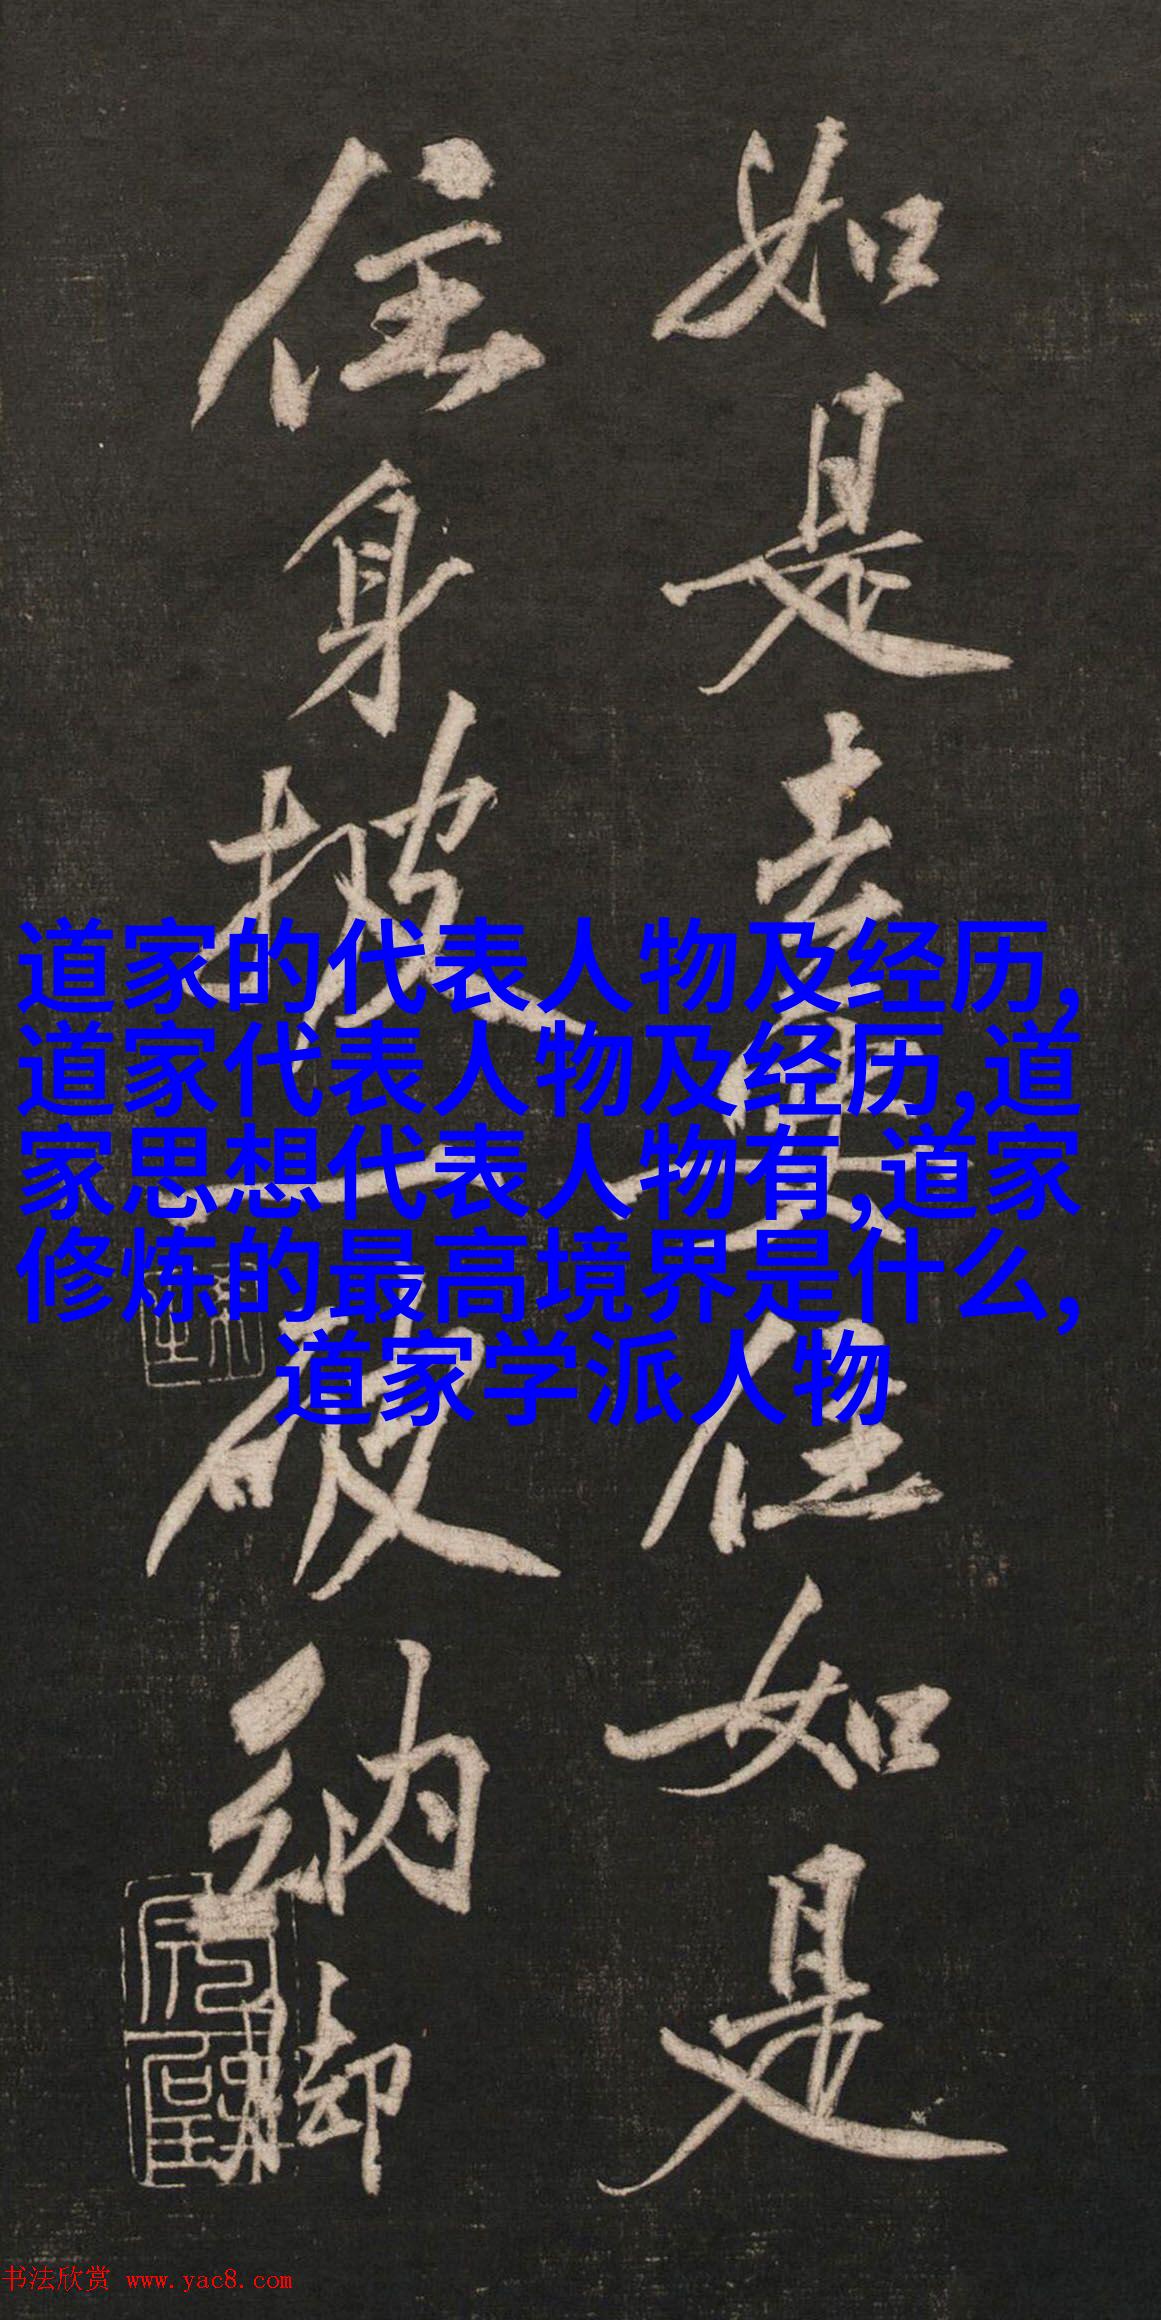 如是
住如是
住身披一破衲脚
道家的代表人物及经历,
道家代表人物及经历,道
家思想代表人物有,道家
修炼的最高境界是什么,
道家学派人物
书法欣赏 www.yac8.com